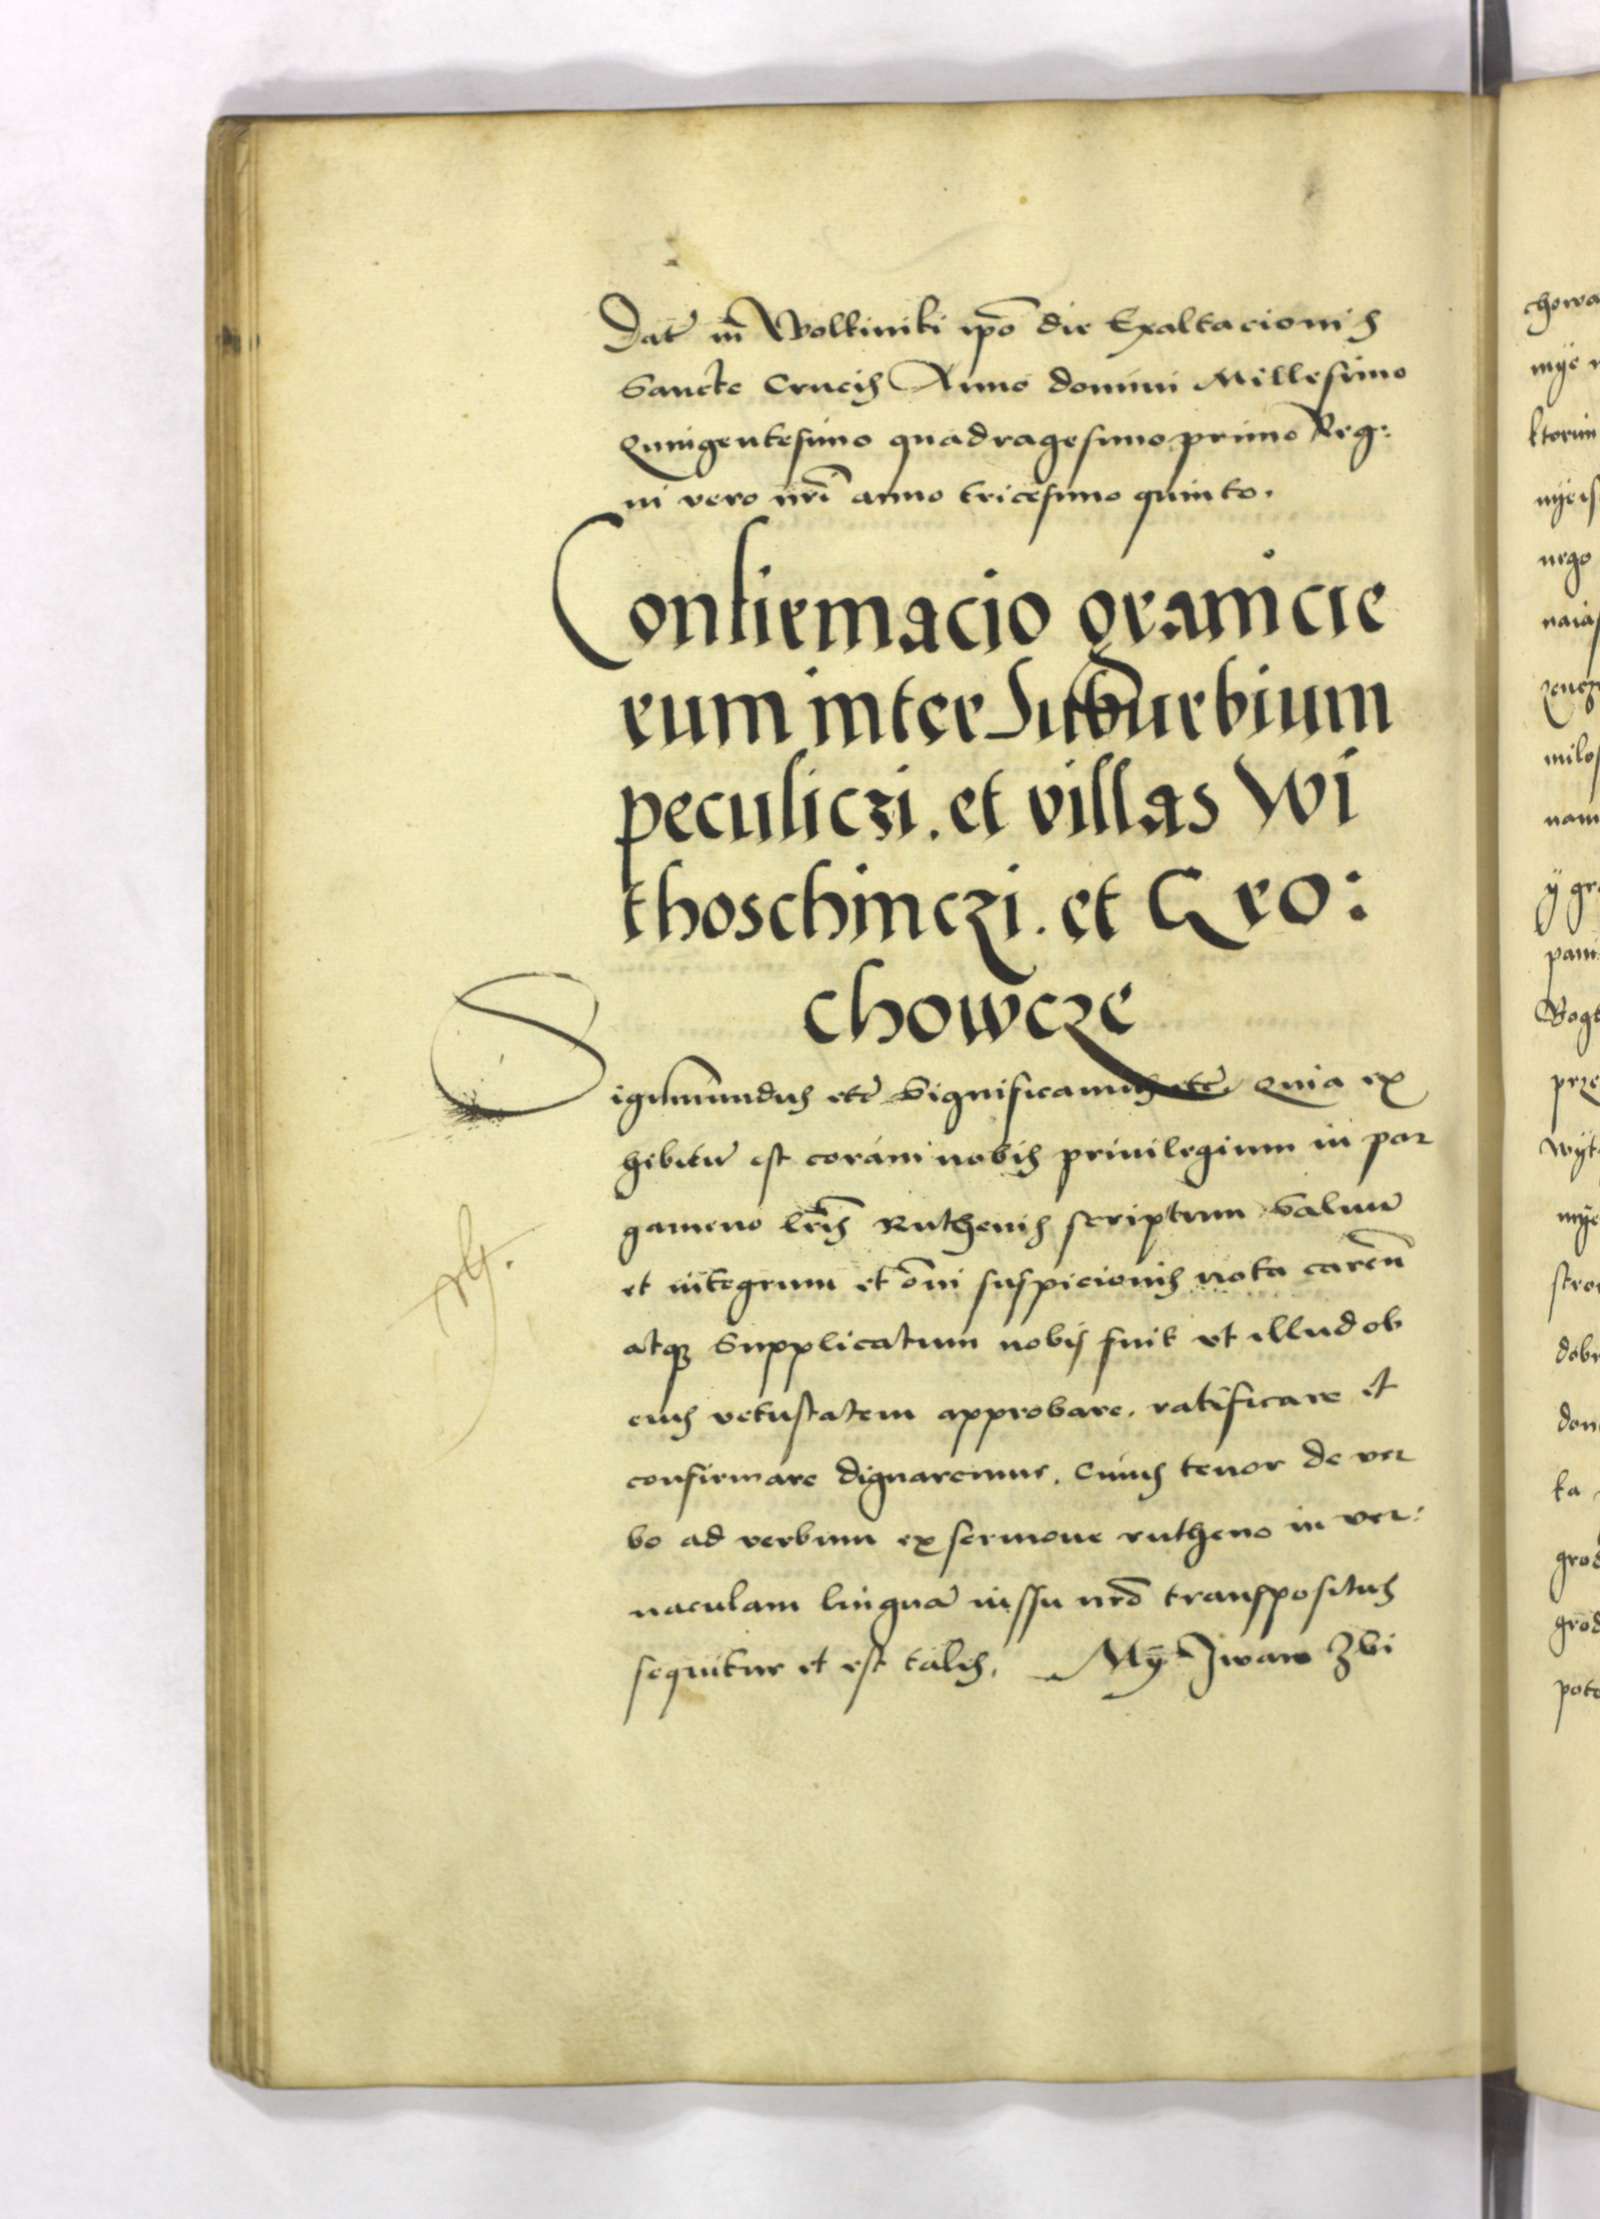 Dat̃ in Wolkiniki ip̃o die Exaltacionis
Sancte Crucis Anno domini Millesimo
Quingentesimo quadragesimo primo Reg:
ni vero nr̃i anno tricesimo quinto.
Confirmacio granicie
rum inter Suburbium
peculiczi. et villas Wi
thoschinczi. et Gro:
chowcze
Sigismundus etc̃ Significamus etc̃ Quia ex
hibitũ est coram nobis privilegium in par
gameno lr̃is Ruthenis scriptum Salvũ
et integrum et om̃i suspicionis nota careñ
atq3 Supplicatum nobis fuit vt illud ob
eius vetustatem approbare. ratificare et
confirmare dignaremur. Cuius tenor de ver
bo ad verbum ex sermone rutheno in ver:
naculam linguã iussu nr̃o transpositus
sequitur et est talis. My Iwan Zbi
chowa
mye
ktorim
nego
milos
nam
y gr
pani
prze
wyt
stro
dobr
don
ka
grod
grod
poto